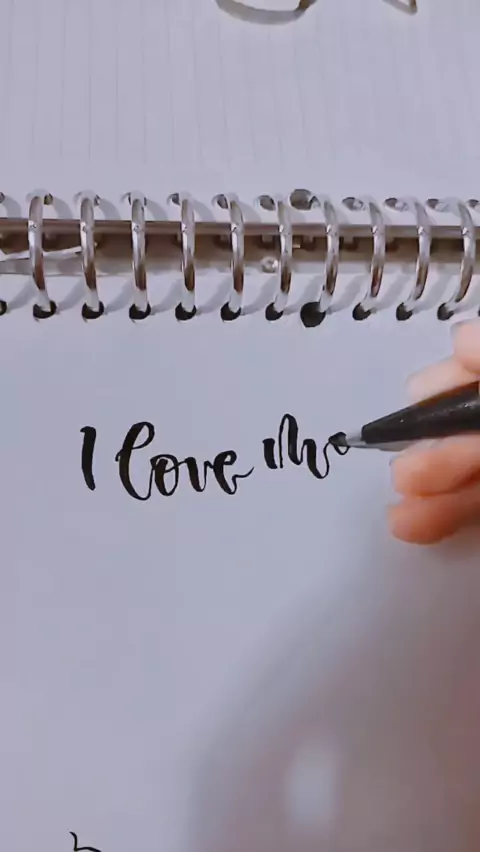 I love me